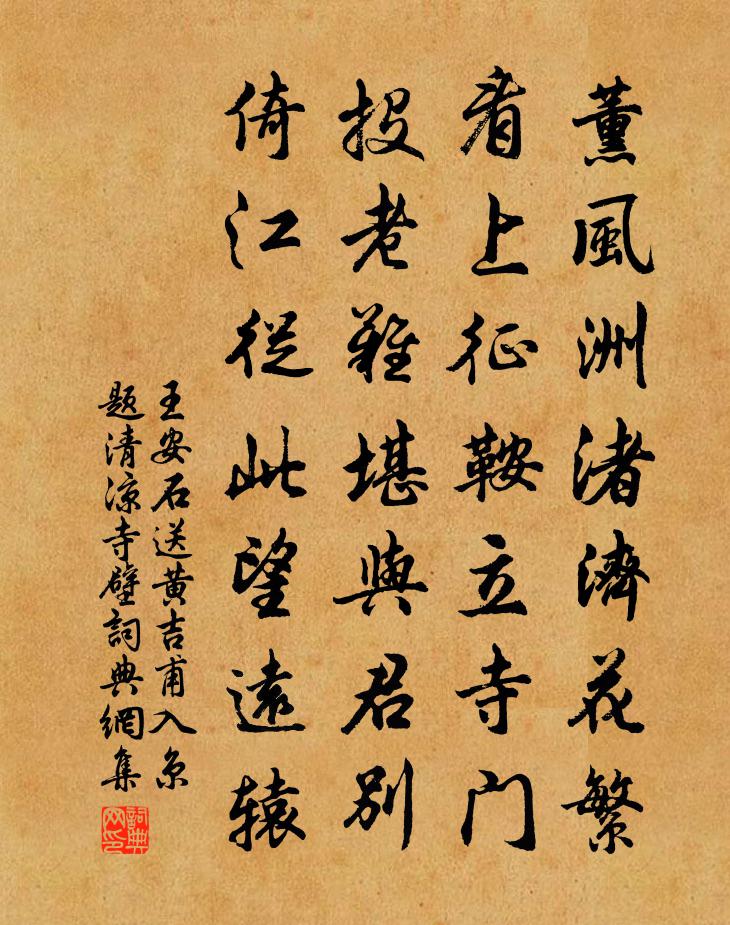 薰風洲渚濟花繁
看上征鞍立寺門
投老難堪與君別
倚江從此望遠辕
王安石送黄吉甫入京
题清涼寺壁詞典網集
詞典网印